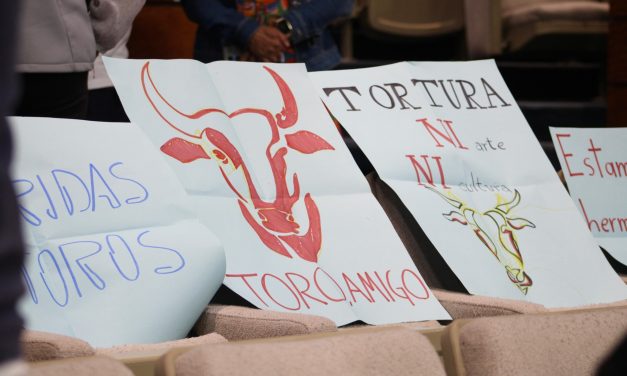 RIDAS
TOROS
TORO, AMIGO
TORTURA
NI arte
NI cultura
Estam
herm